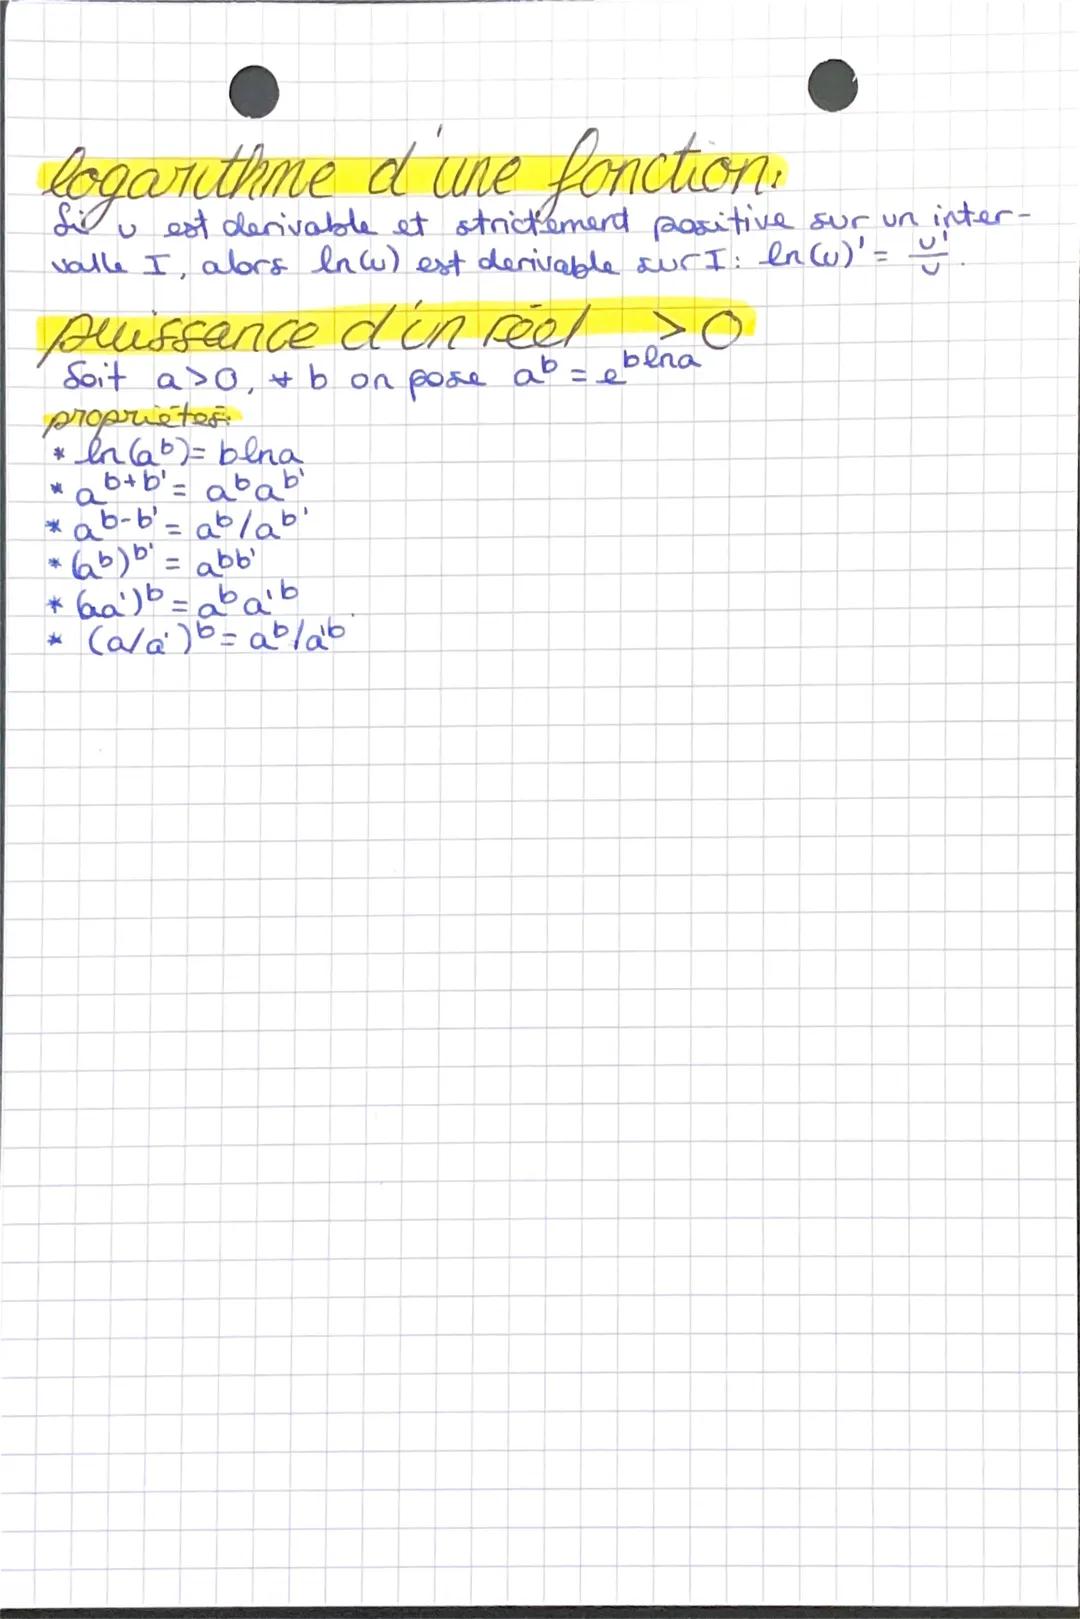 logarithme d'une fonction.
Si u est derivable et strictement positive sur un inter-
valle I, alors ln(u) est derivable sur I: ln(u)' = u'/u.
puissance d'un réel >0
Soit a>0, ∀ b on pose a^b = e^{b ln a}
propriétés:
* ln(a^b) = b ln a
* a^{b+b'} = a^b a^{b'}
* a^{b-b'} = a^b/a^{b'}
* (a^b)^{b'} = a^{bb'}
* (aa')^b = a^b a'^b
* (a/a')^b = a^b/a'^b